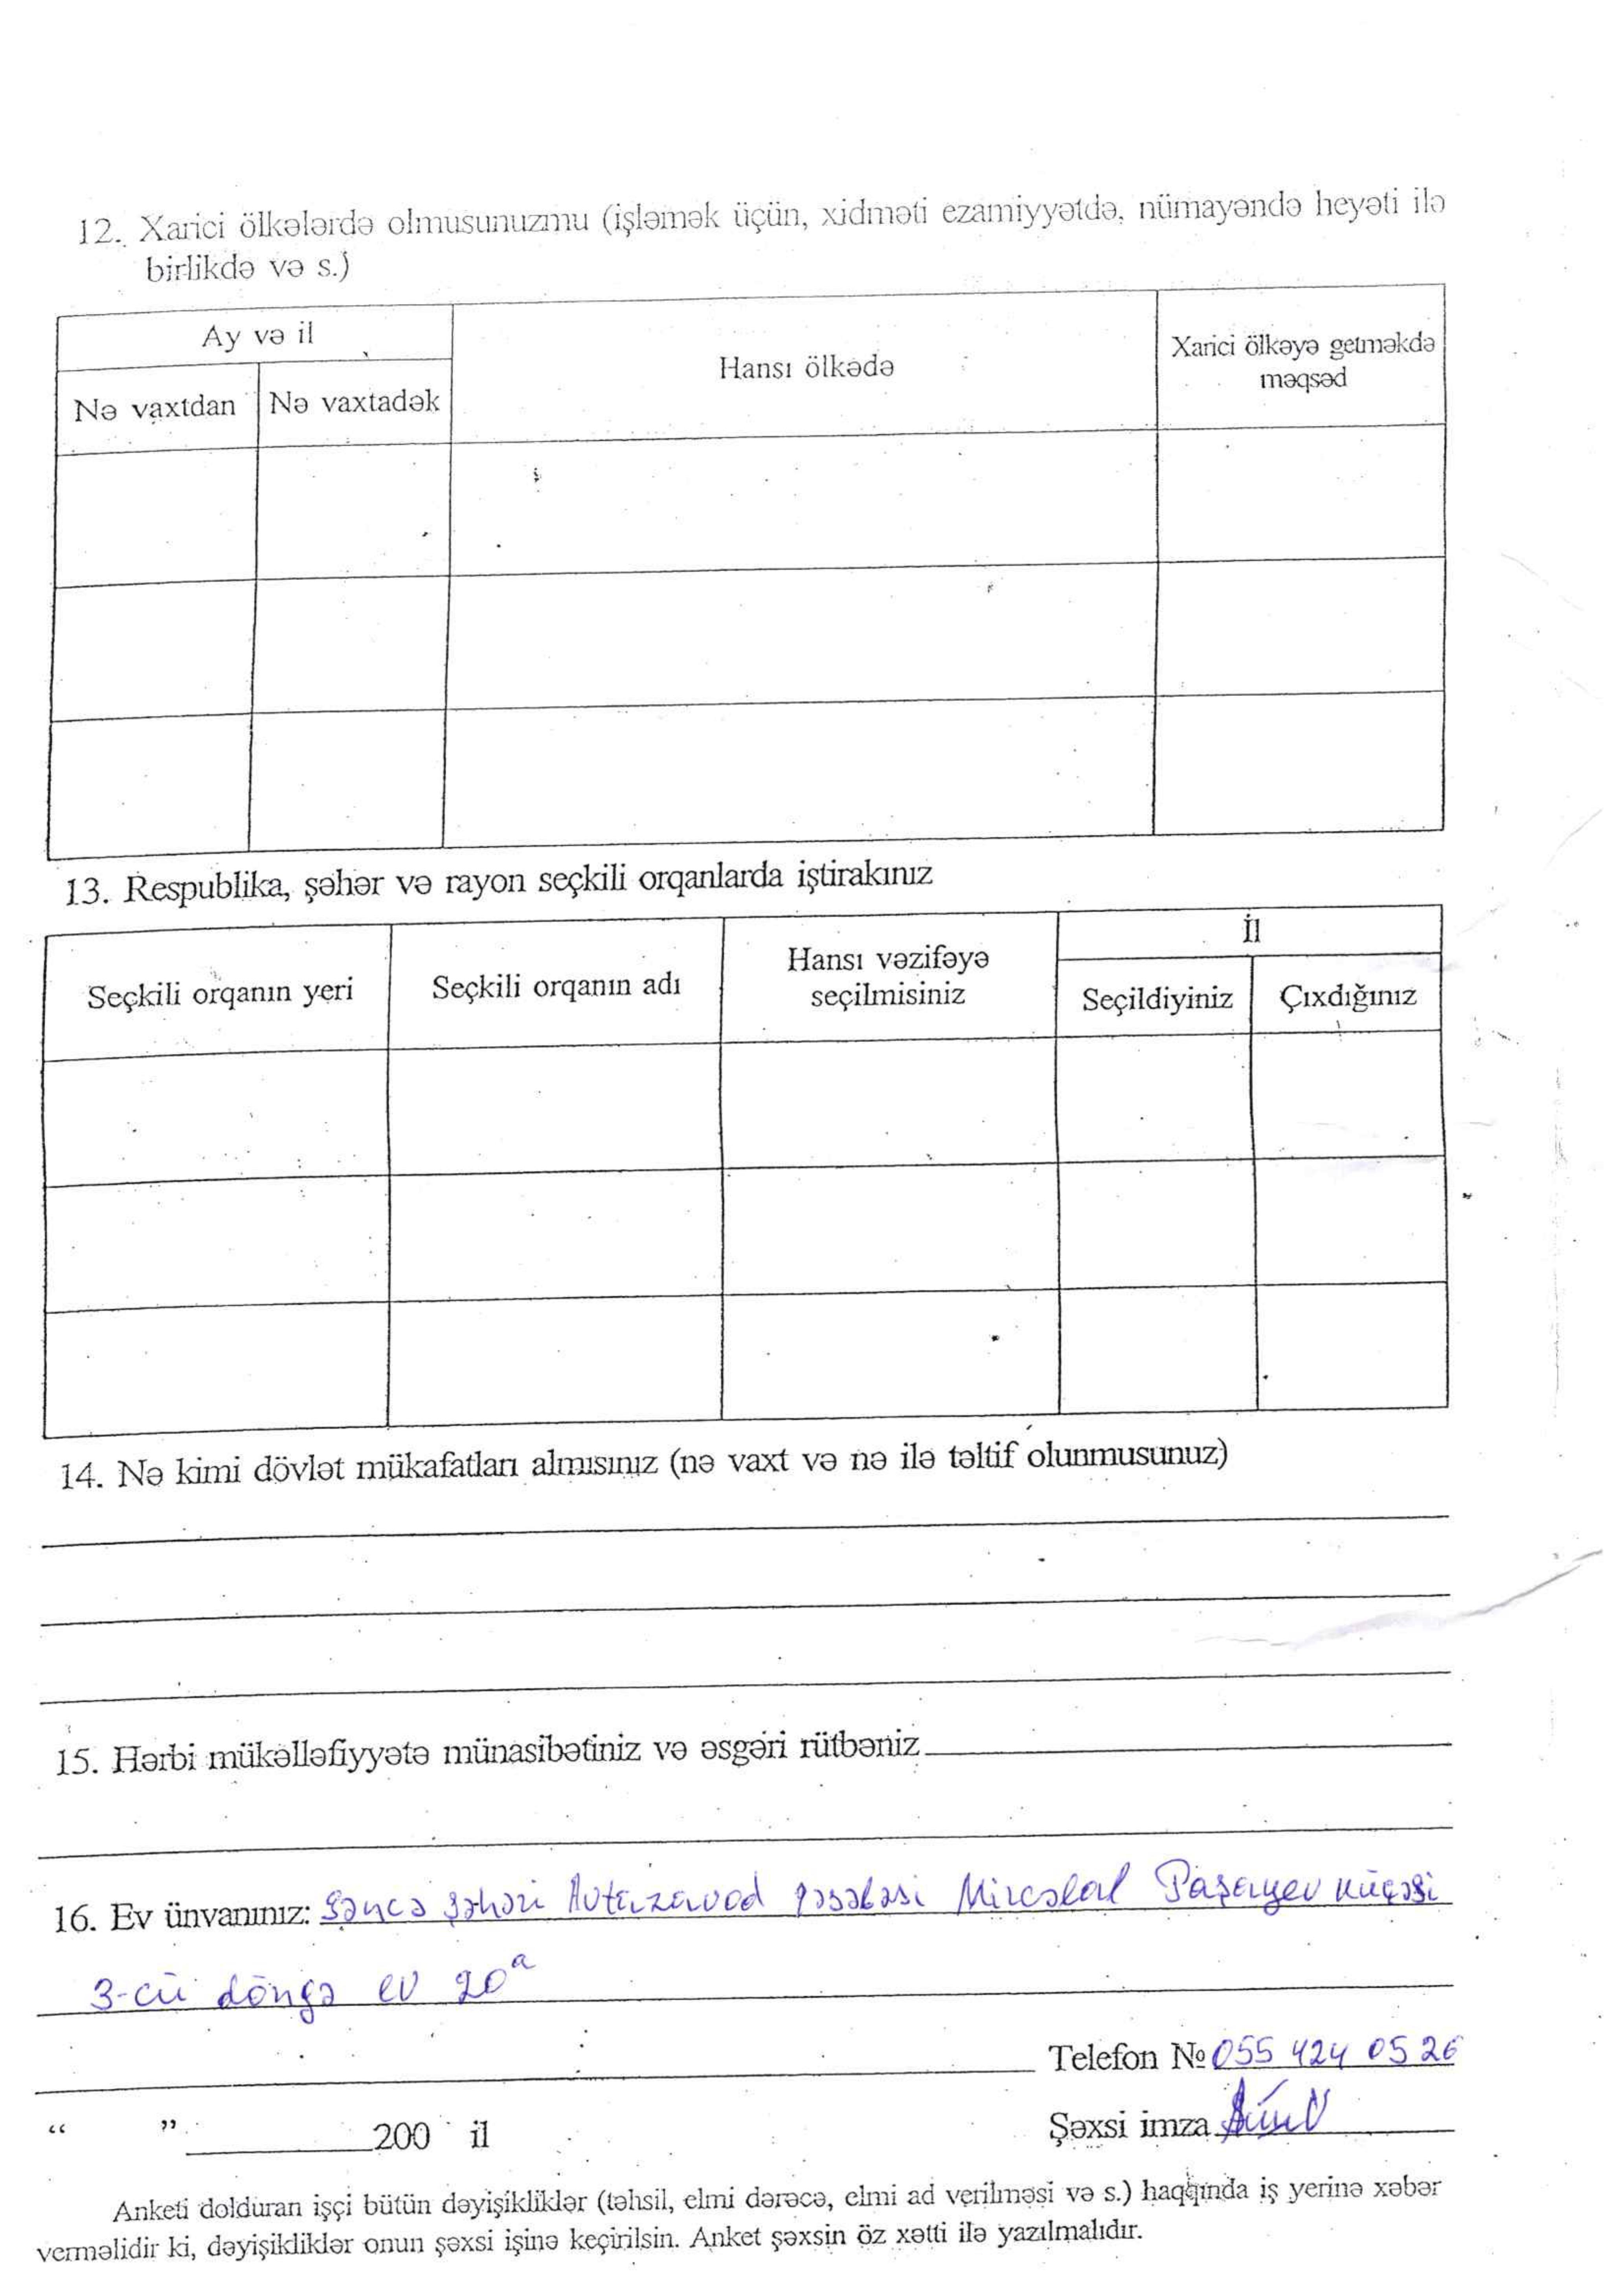 12. Xarici ölkələrdə olmusunuzmu (işləmək üçün, xidməti ezamiyyətdə, nümayəndə heyəti ilə
birlikdə və s.)
Ay və il
Hansı ölkədə
Xarici ölkəyə getməkdə
məqsəd
Nə vaxtdan
Nə vaxtadək
13. Respublika, şəhər və rayon seçkili orqanlarda iştirakınız
Seçkili orqanın yeri
Seçkili orqanın adı
Hansı vəzifəyə
seçilmisiniz
İl
Seçildiyiniz
Çıxdığınız
14. Nə kimi dövlət mükafatları almısınız (nə vaxt və nə ilə təltif olunmusunuz)
15. Hərbi mükəlləfiyyətə münasibətiniz və əsgəri rütbəniz
16. Ev ünvanınız: Gəncə şəhəri Avtozavod qəsəbəsi Mircəlal Paşayev küçəsi
3-cü döngə ev 20a
Telefon № 055 424 05 26
“ ” 200 il
Şəxsi imza
Anketi dolduran işçi bütün dəyişikliklər (təhsil, elmi dərəcə, elmi ad verilməsi və s.) haqqında iş yerinə xəbər
verməlidir ki, dəyişikliklər onun şəxsi işinə keçirilsin. Anket şəxsin öz xətti ilə yazılmalıdır.